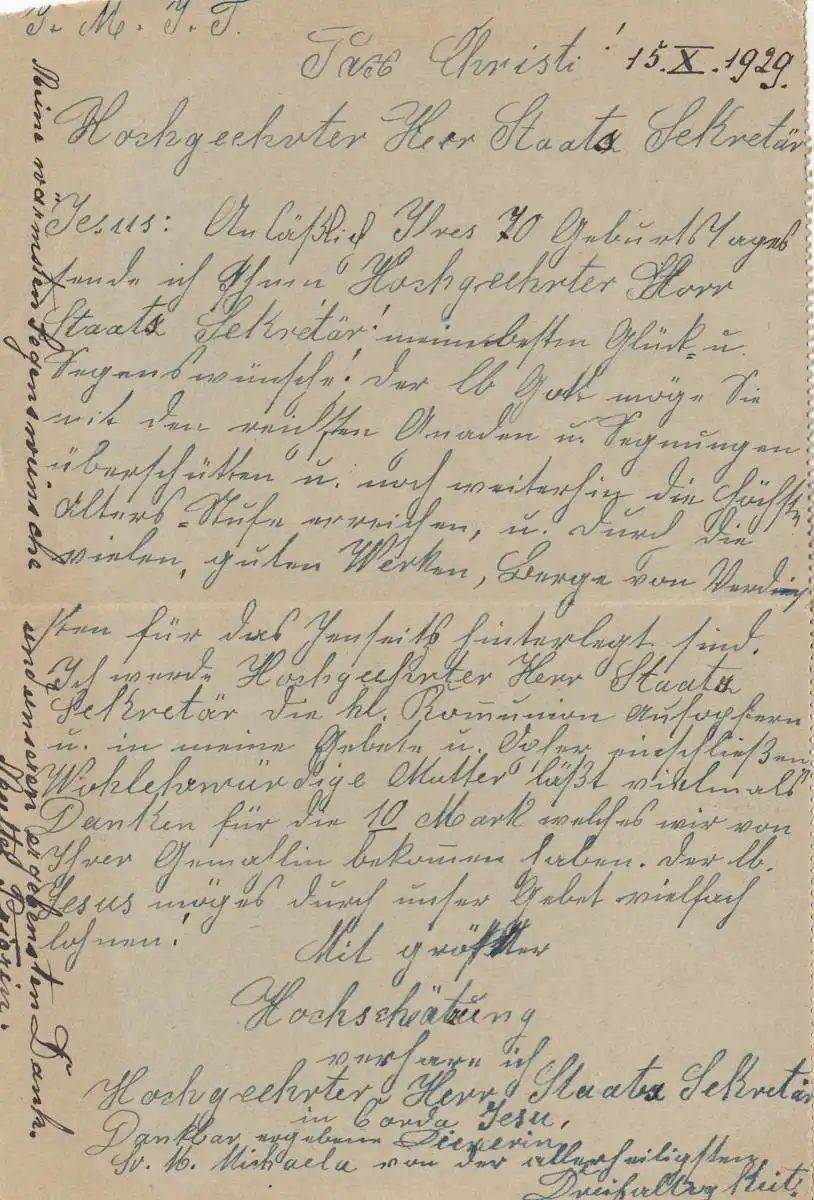 J. M. J. T.
Pax Christi! 15.X.1929.
Hochgeehrter Herr Staats Sekretär
Jesus: Anläßlich Ihres 70 Geburtstages
sende ich Ihnen Hochgeehrter Herr
Staats Sekretär! meine besten Glück= u.
Segenswünsche! Der lb Gott möge Sie
mit den reichsten Gnaden u. Segnungen
überschütten u. noch weiterhin die höchste
Alters=Stufe erreichen, u. durch die
vielen, guten Werken, Berge von Verdien
sten für das Jenseits hinterlegt sind.
Ich werde Hochgeehrter Herr Staats
Sekretär die hl. Kommunion aufopfern
u. in meine Gebete u. Opfer einschließen
Wohlehrwürdige Mutter läßt vielmals
Danken für die 10 Mark welches wir von
Ihrer Gemahlin bekommen haben. Der lb.
Jesus möges durch unser Gebet vielfach
lohnen!
Mit größter
Hochschätzung
verharre ich
Hochgeehrter Herr Staats Sekretär
in Corda Jesu,
Dankbar ergebene Dienerin
Sr. M. Michaela von der allerheiligsten
Dreifaltigkeit
Meine wärmsten Segenswünsche und unseren ergebensten Dank.
Priorin.